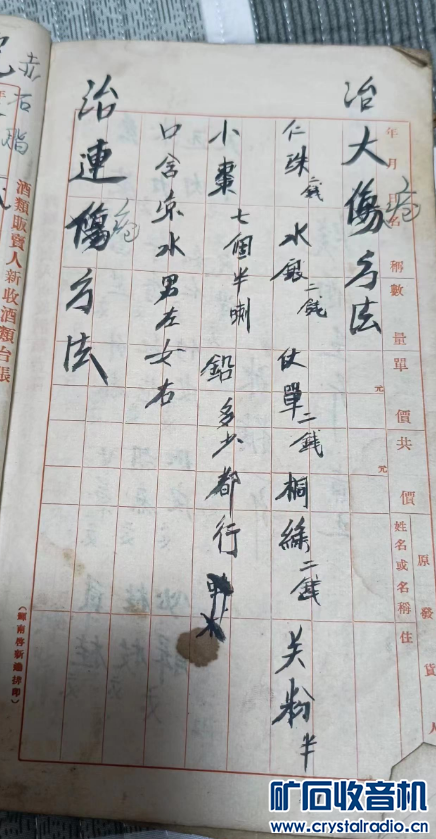 冶大傷方法
疮
年 月 名 稱 數 量 單 價 共 價
元 元
姓名或名稱 住
原 發 貨 人
仁珠二錢 水銀二錢 仗單二錢 桐綠二錢 关粉半
小棗七個半 鉛多少都行
口含凉水男左女右
治連傷方法
疮
酒類販賣人新收酒類台帳
赤石脂
矿石收音机
www.crystalradio.cn